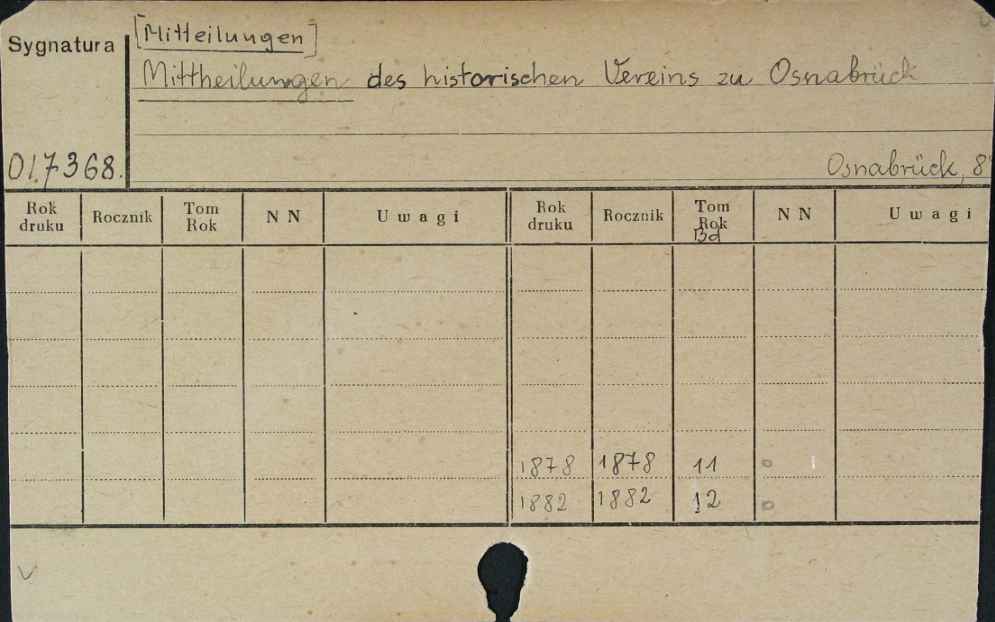 [Mitteilungen]
Sygnatura
Mittheilungen des historischen Vereins zu Osnabrück
017368.
Osnabrück, 8°
Rok druku Rocznik Tom Rok N N Uwagi Rok druku Rocznik Tom Rok Bd N N Uwagi
1878 1878 11 o
1882 1882 12 o